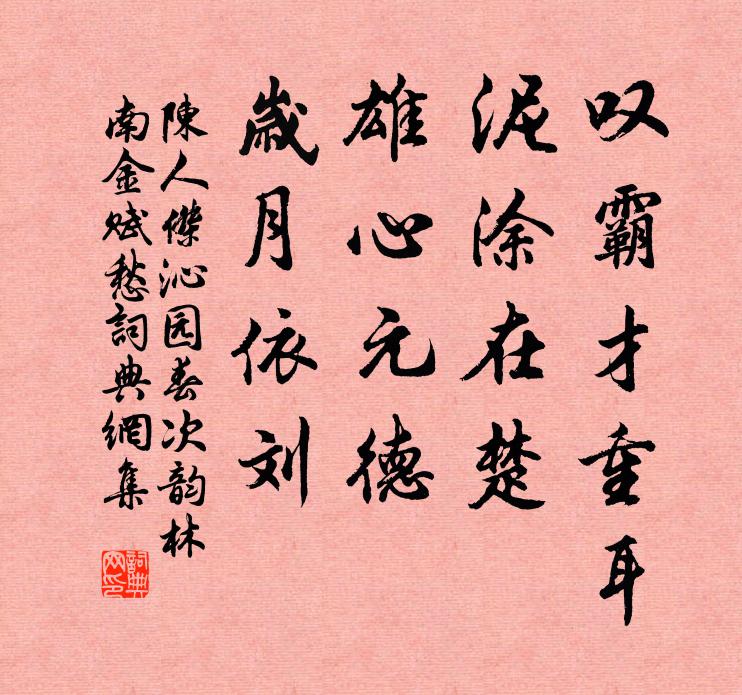 叹霸才重耳
泥涂在楚
雄心元德
岁月依刘
陳人傑沁园春次韵林
南金赋愁詞典網集
詞典网印